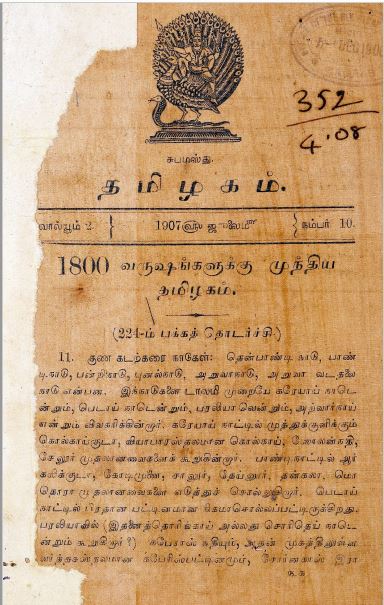 352
4.08
சுபமஸ்து.
தமிழகம்.
வால்யூம் 2. } 1907 ௵ ஜூலை ௴ { நம்பர் 10.
1800 வருஷங்களுக்கு முந்திய
தமிழகம்.
(224-ம் பக்கத் தொடர்ச்சி.)
11. குண கடற்கரை நாடுகள்: தென்பாண்டி நாடு, பாண்
டிநாடு, பன்றிநாடு, புனல்நாடு, அருவாநாடு, அருவா வடதலை
நாடு என்பன. இந்நாடுகளை டாலமி முறையே கரேயாய் நாடெ
ன்றும், பெடாய் நாடென்றும், பரலியா வென்றும், அற்வார்நாய்
என்றும் விவகரிக்கின்றார். கரேயாய் நாட்டில் முத்துக்குளிக்கும்
கொல்காய்குடா, வியாபாரஸ்தலமான கொல்காய், ஸோலன்நதி,
சேலூர் முதலானவைகளைக் கூறுகின்றார். பாண்டிநாட்டில் ஆர்
கலிக்குடா, கோடிமுனை, சாலூர், தேய்னூர், தன்கலா, மொ
தொரா முதலானவைகளை எடுத்துச் சொல்லுகிறார். பெடாய்
நாட்டில் பிரதான பட்டினமான கமரசொல்லப்பட்டிருக்கிறது.
பரலியாவில் (இதனைத்தொரிங்காய் அல்லது சொரிதெய் நாடெ
ன்றும் கூறுகிறார்?) கபேராஸ் நதியும், அதன் முகத்திலுள்ள
வர்த்தகஸ்தலமான கபேரிஸ்பட்டினமும், சோர்னகாஸ் இரா